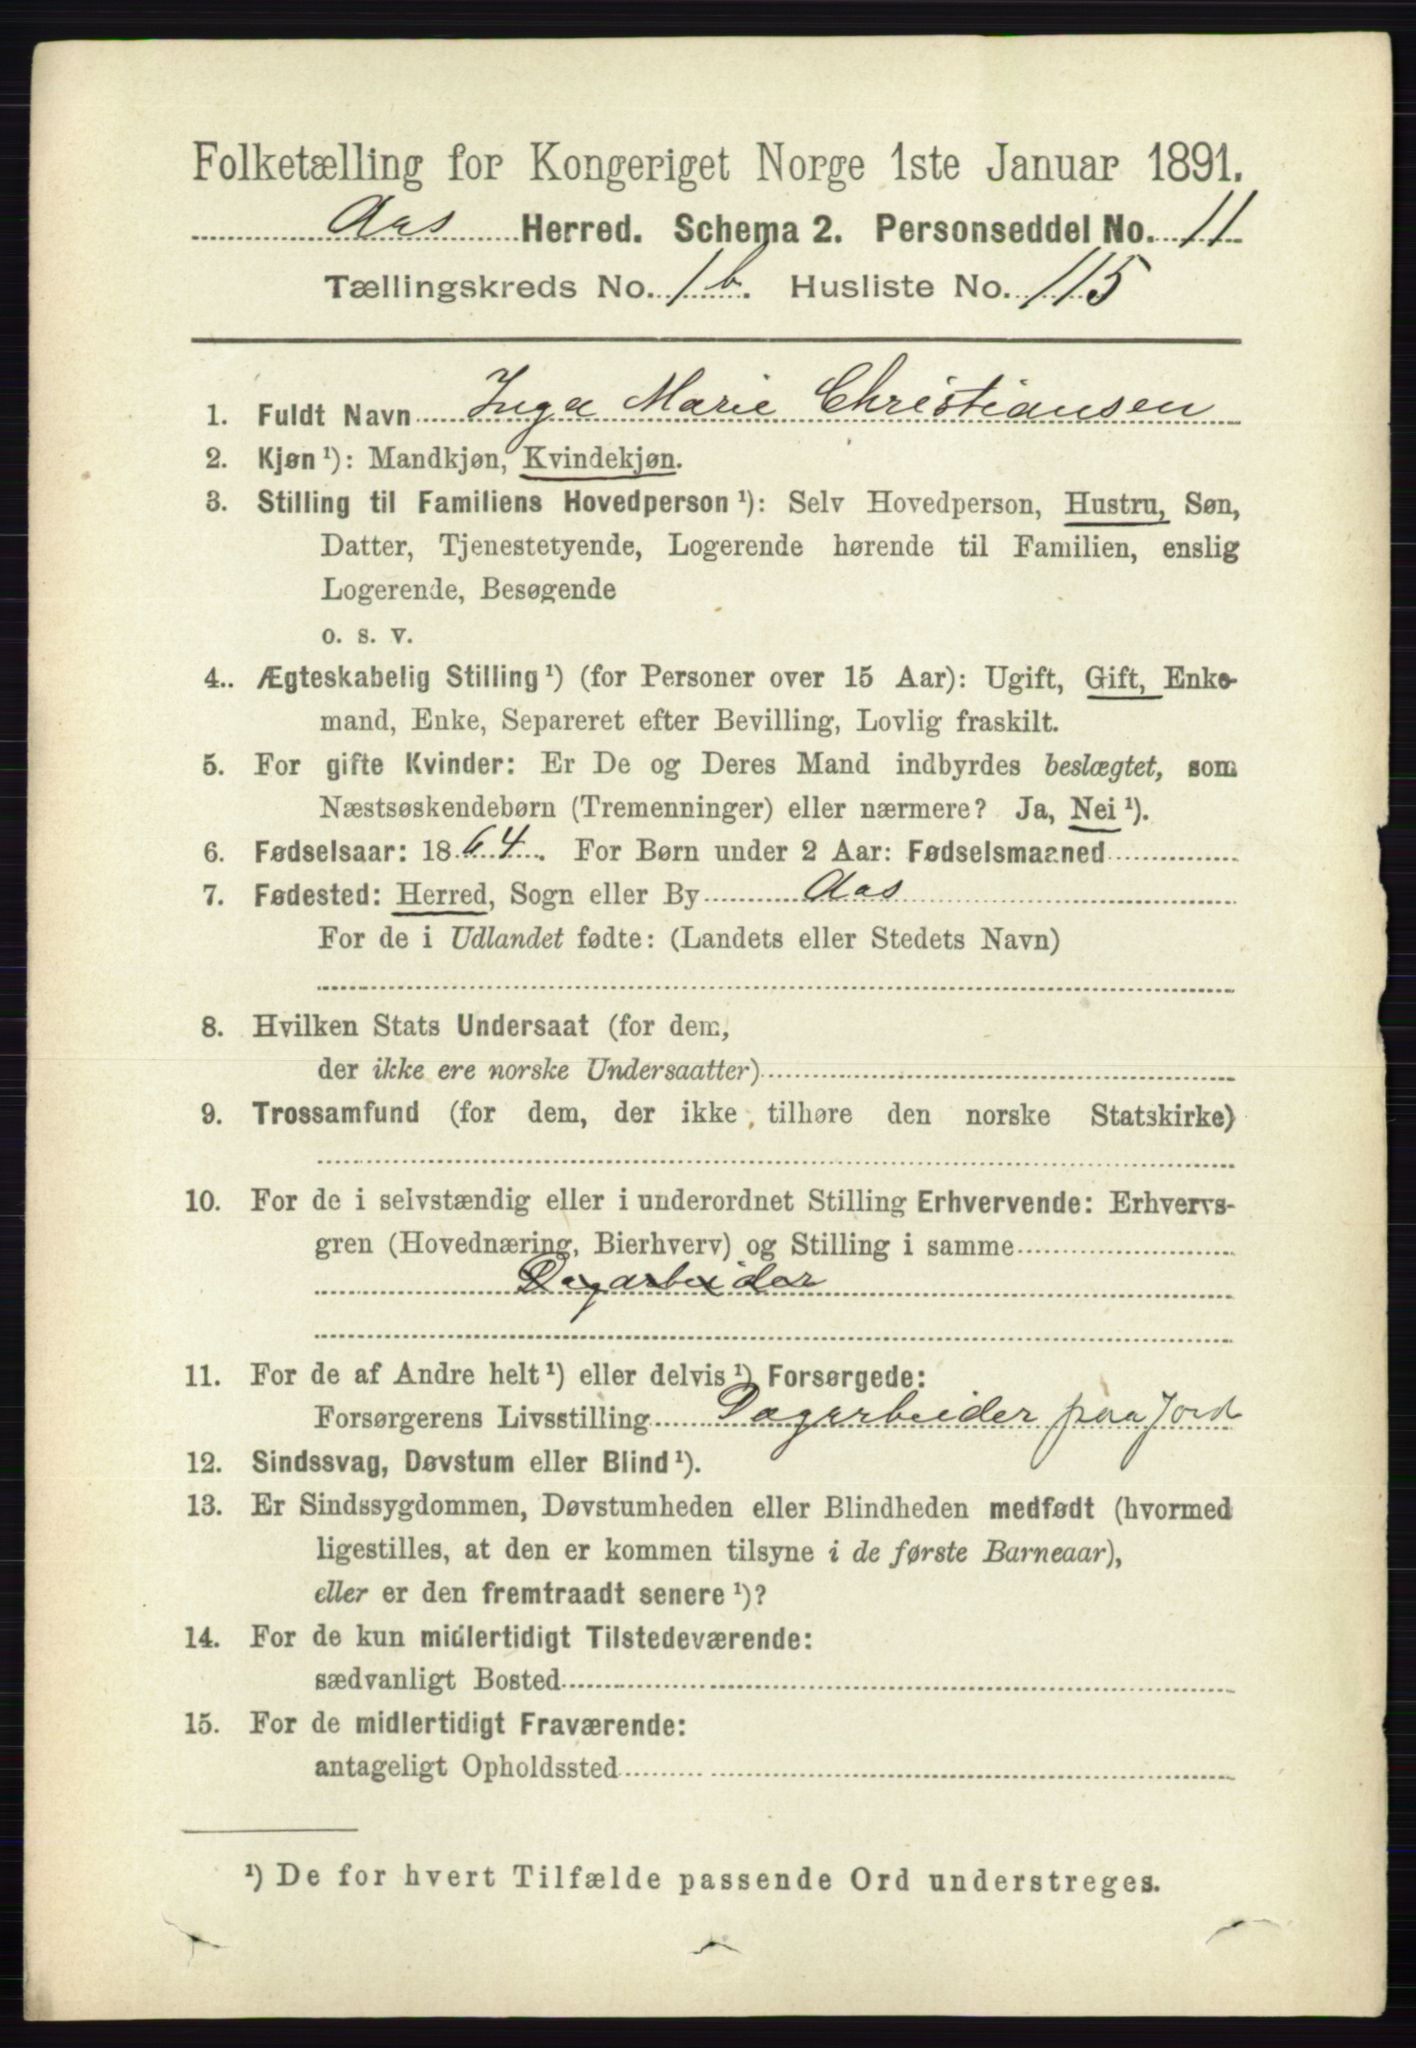 Folketælling for Kongeriget Norge 1ste Januar 1891.
Aas Herred. Schema 2. Personseddel No. 11
Tællingskreds No. 1 b. Husliste No. 115
1. Fuldt Navn Inga Marie Christiansen
2. Kjøn¹): Mandkjøn, Kvindekjøn.
3. Stilling til Familiens Hovedperson¹): Selv Hovedperson, Hustru, Søn,
Datter, Tjenestetyende, Logerende hørende til Familien, enslig
Logerende, Besøgende
o. s. v.
4.. Ægteskabelig Stilling¹) (for Personer over 15 Aar): Ugift, Gift, Enke-
mand, Enke, Separeret efter Bevilling, Lovlig fraskilt.
5. For gifte Kvinder: Er De og Deres Mand indbyrdes beslægtet, som
Næstsøskendebørn (Tremenninger) eller nærmere? Ja, Nei¹).
6. Fødselsaar: 1864. For Børn under 2 Aar: Fødselsmaaned
7. Fødested: Herred, Sogn eller By Aas
For de i Udlandet fødte: (Landets eller Stedets Navn)
8. Hvilken Stats Undersaat (for dem,
der ikke ere norske Undersaatter)
9. Trossamfund (for dem, der ikke tilhøre den norske Statskirke)
10. For de i selvstændig eller i underordnet Stilling Erhvervende: Erhvervs-
gren (Hovednæring, Bierhverv) og Stilling i samme
Dagarbeider
11. For de af Andre helt¹) eller delvis¹) Forsørgede:
Forsørgerens Livsstilling Dagarbeider paa Jord
12. Sindssvag, Døvstum eller Blind¹).
13. Er Sindssygdommen, Døvstumheden eller Blindheden medfødt (hvormed
ligestilles, at den er kommen tilsyne i de første Barneaar),
eller er den fremtraadt senere¹)?
14. For de kun midlertidigt Tilstedeværende:
sædvanligt Bosted
15. For de midlertidigt Fraværende:
antageligt Opholdssted
¹) De for hvert Tilfælde passende Ord understreges.